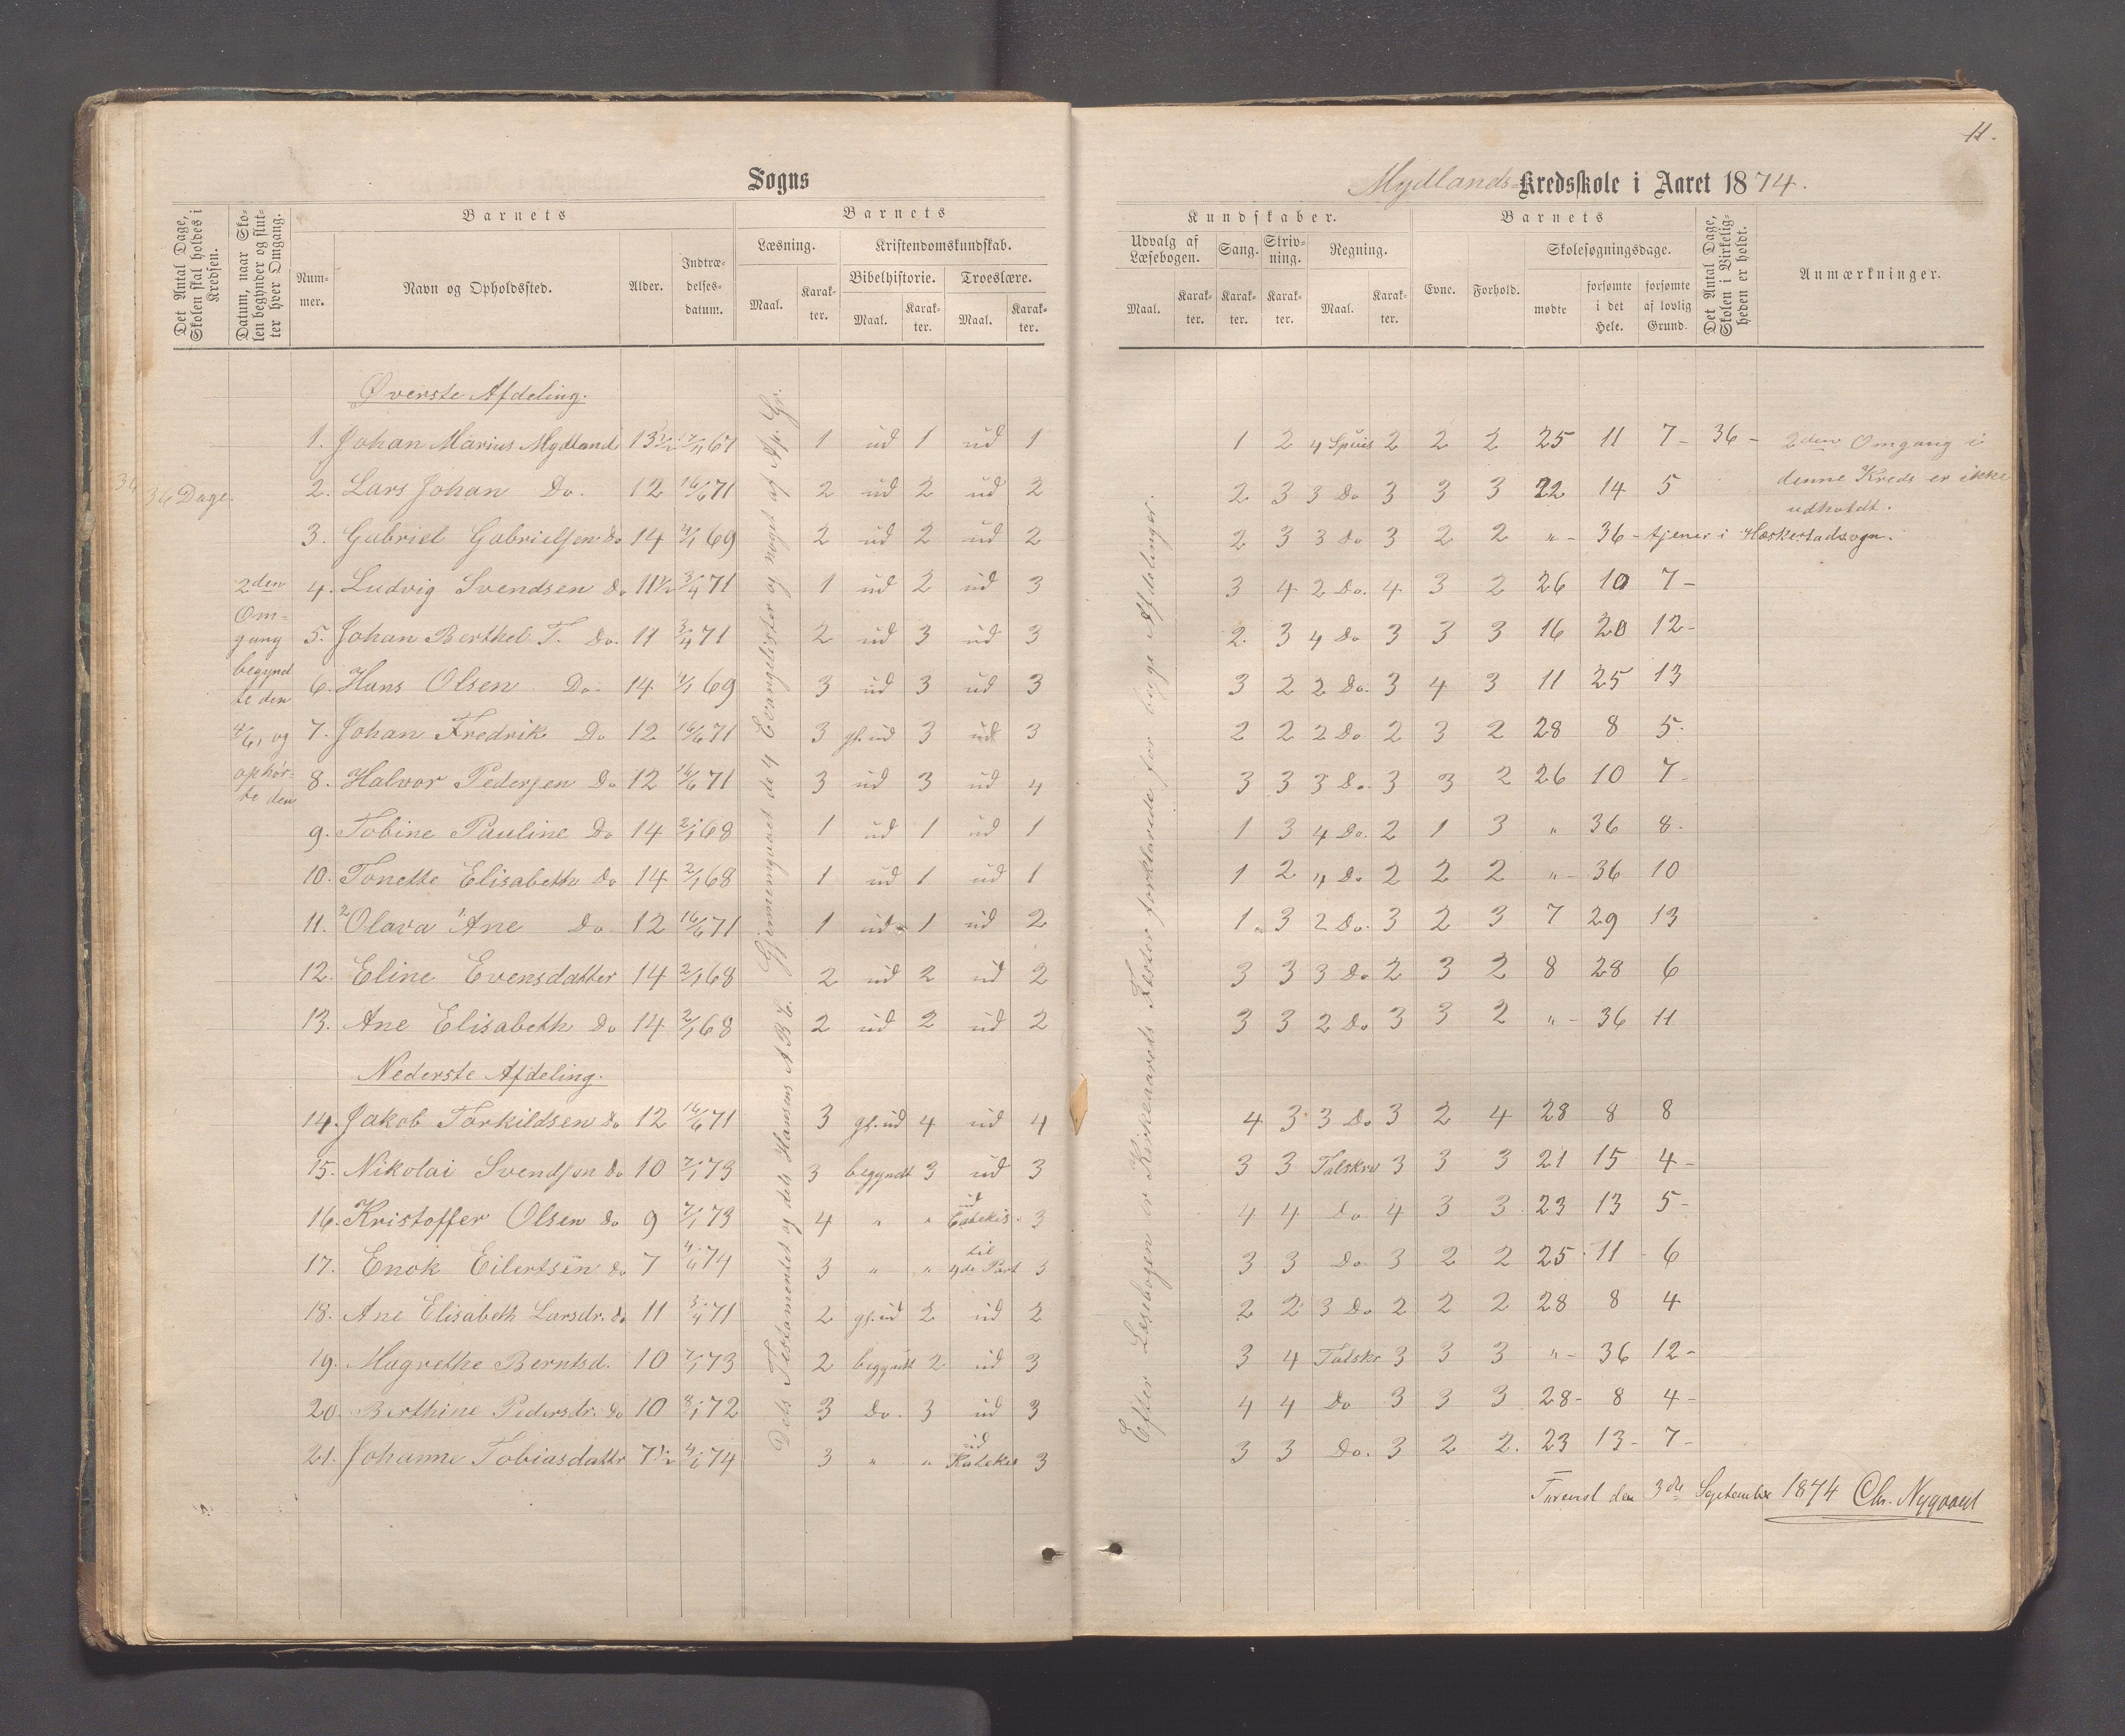 11.
Sogns
Mydlands-Kredsskole i Aaret 1874.
Det Antal Dage, Skolen skal holdes i Kredsen.
Datum, naar Skolen begynder og slutter hver Omgang.
Barnets
Nummer.
Navn og Opholdssted.
Alder.
Indtrædelsesdatum.
Barnets
Læsning.
Maal.
Karakter.
Kristendomskundskab.
Bibelhistorie.
Maal.
Karakter.
Troeslære.
Maal.
Karakter.
Kundskaber.
Udvalg af Læsebogen.
Maal.
Karakter.
Sang.
Karakter.
Skrivning.
Karakter.
Regning.
Maal.
Karakter.
Barnets
Evne.
Forhold.
Skolesøgningsdage.
mødte
forsømte i det Hele.
forsømte af lovlig Grund.
Det Antal Dage, Skolen i Virkeligheden er holdt.
Anmærkninger.
36 Dage.
2den
Om-
gang
begynd
te den
4/6, og
ophør-
te den
Dels Testamentet og dels Hansens A B C. Gjennemgaaet de 4 Evangelister og noget af Ap. Gr.
Efter Læsebogen er Kirkeaarets Fester forklarede for begge Afdelinger.
Øverste Afdeling.
1. Johan Marius Mydland 13 1/2 67 1 ud 1 ud 1 1 2 4 Spiis 2 2 2 25 11 7 - 36 - 2den Omgang i
2. Lars Johan Do. 12 16/6 71 2 ud 2 ud 2 2 3 3 Do 3 3 3 22 14 5 denne Kreds er ikke
udholdt.
3. Gabriel Gabrielsen Do 14 4/1 69 2 ud 2 ud 2 2 3 3 Do 3 2 2 " - 36 - tjener i Heskestadsogn.
4. Ludvig Svendsen Do 11 1/2 3/4 71 1 ud 2 ud 3 3 4 2 Do. 4 3 2 26 10 7 -
5. Johan Berthel T. Do. 11 3/4 71 2 ud 3 ud 3 2 3 4 Do 3 3 3 16 20 12 -
6. Hans Olsen Do. 14 4/1 69 3 ud 3 ud 3 3 2 2 Do. 3 4 3 11 25 13
7. Johan Fredrik Do 12 16/6 71 3 gl. ud 3 ud 3 2 2 2 Do 2 3 2 28 8 5.
8. Halvor Pedersen Do 12 16/6 71 3 ud 3 ud 4 3 3 3 Do. 3 3 2 26 10 7 -
9. Tobine Pauline Do 14 2/1 68 1 ud 1 ud 1 1 3 4 Do. 2 1 3 " 36 8 -
10. Tonette Elisabeth Do 14 2/1 68 1 ud 1 ud 1 1 2 4 Do 2 2 2 " - 36 10
11. 2 Olava 1. Ane Do 12 16/6 71 1 ud 1 ud 2 1 3 2 Do. 3 2 3 7 29 13
12. Eline Evensdatter 14 2/1 68 2 ud 2 ud 2 3 3 3 Do 2 3 2 8 28 6
13. Ane Elisabeth Do 14 2/1 68 2 ud 2 ud 2 3 3 2 Do 3 3 2 " - 36 11
Nederste Afdeling.
14. Jakob Torkildsen Do 12 16/6 71 3 gl. ud 4 ud 4 4 3 3 Do 3 2 4 28 8 8
15. Nikolai Svendsen Do 10 7/1 73 3 begyndt 3 ud 3 3 3 Talskr 3 3 3 21 15 4 -
16. Kristoffer Olsen Do 9 7/1 73 4 " " ud Catekis. 3 4 4 Do 4 3 3 23 13 5 -
17. Enok Eilertsen Do 7 4/6 74 3 " " til 4de Part 3 3 3 Do 3 2 2 25 11 6
18. Ane Elisabeth Larsdr. Do 11 3/4 71 2 gl. ud 2 ud 2 2 2 3 Do 2 2 2 28 8 4
19. Magrethe Berntsd. 10 7/1 73 2 begyndt 2 ud 3 3 4 Talskr 3 3 3 " - 36 12 -
20. Berthine Pedersdr. Do 10 3/1 72 3 Do. 3 ud 3 4 4 Do 3 3 3 28 - 8 4 -
21. Johanne Tobiasdattr 7 1/2 4/6 74 3 " " ud Katekes 3 3 3 Do. 3 2 2. 23 13 - 7 -
den 3die September 1874 Chr. Nygaard